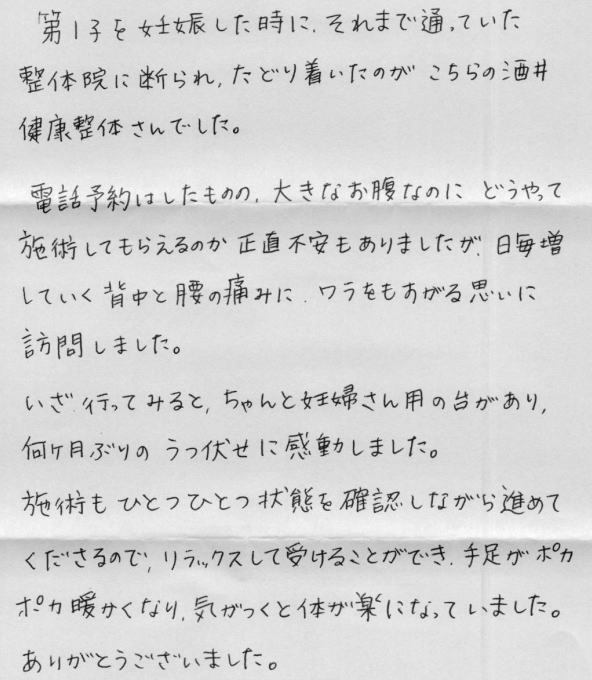 第1子を妊娠した時に、それまで通っていた
整体院に断られ、たどり着いたのが こちらの酒井
健康整体さんでした。
電話予約はしたものの、大きなお腹なのに どうやって
施術してもらえるのか 正直不安もありましたが、日毎増
していく 背中と腰の痛みに、ワラをもすがる思いに
訪問しました。
いざ、行ってみると、ちゃんと妊婦さん用の台があり、
何ケ月ぶりの うつ伏せに感動しました。
施術も ひとつひとつ 状態を確認しながら進めて
くださるので、リラックスして受けることができ、手足が ポカ
ポカ 暖かくなり、気がつくと体が楽になっていました。
ありがとうございました。